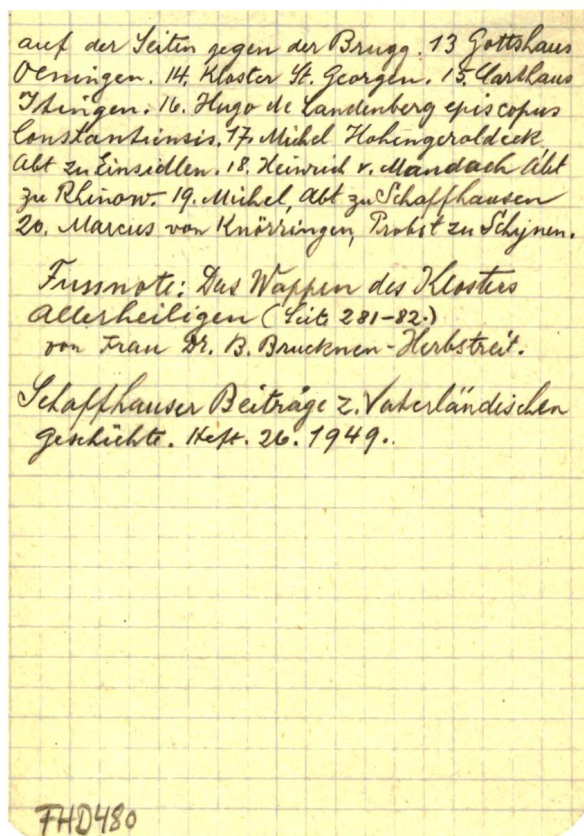 auf der Seiten gegen der Brugg. 13 Gottshaus
Oeningen. 14. Kloster St. Georgen. 15. Carthaus
Ittingen. 16. Hugo de Landenberg episcopus
Constantiensis. 17. Michel Hohengeroldeck,
Abt zu Einsidlen. 18. Heinrich v. Mandach Abt
zu Rhinow. 19. Michel, Abt zu Schaffhausen
20. Marcus von Knörringen, Probst zu Schynen.
Fussnote: Das Wappen des Klosters
Allerheiligen (Seite 281-82.)
von Frau Dr. B. Bruckner-Herbstreit.
Schaffhauser Beiträge z. Vaterländischen
Geschichte. Heft. 26. 1949.
FHD480